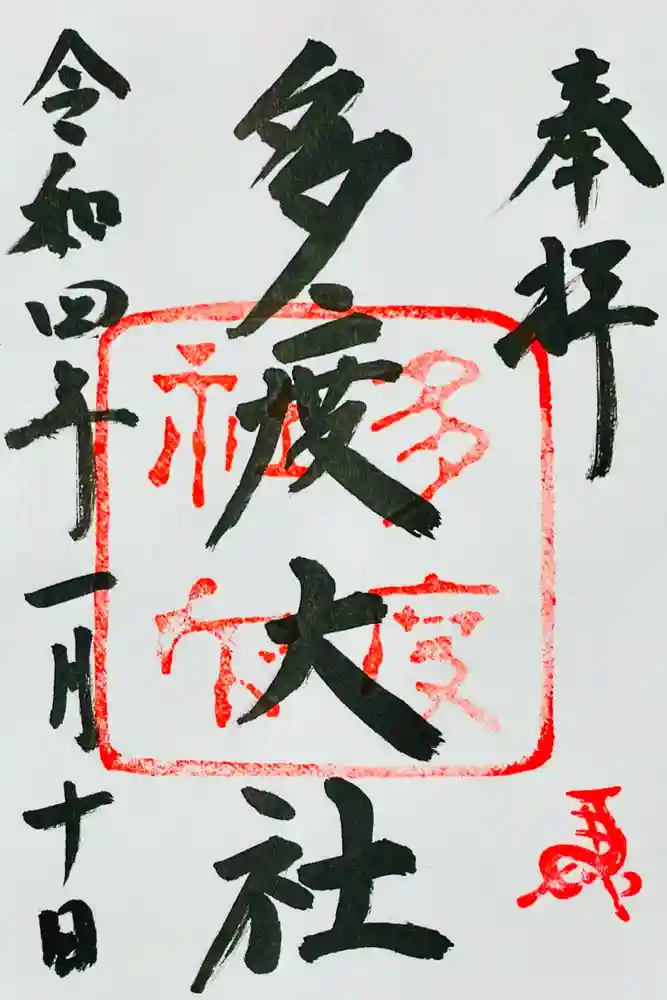 奉拝
多度大社
多度
社印
令和四年一月十日